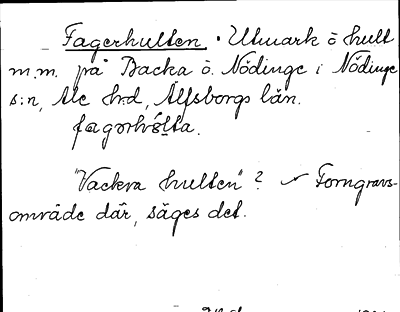 Fagerhulten. Utmark ö hult
m.m. på Backa ö. Nödinge i Nödinge
s:n, Ale hrd, Älfsborgs län.
fagərhúlta.
"Vackra hulten"? Forngravs-
område där, säges det.